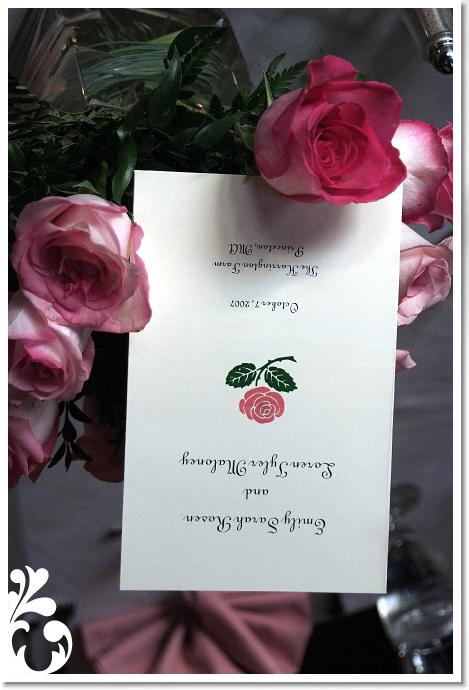 Emily Sarah Rosen
and
Loren Tyler Maloney
October 7, 2007
The Harrington Farm
Princeton, MA